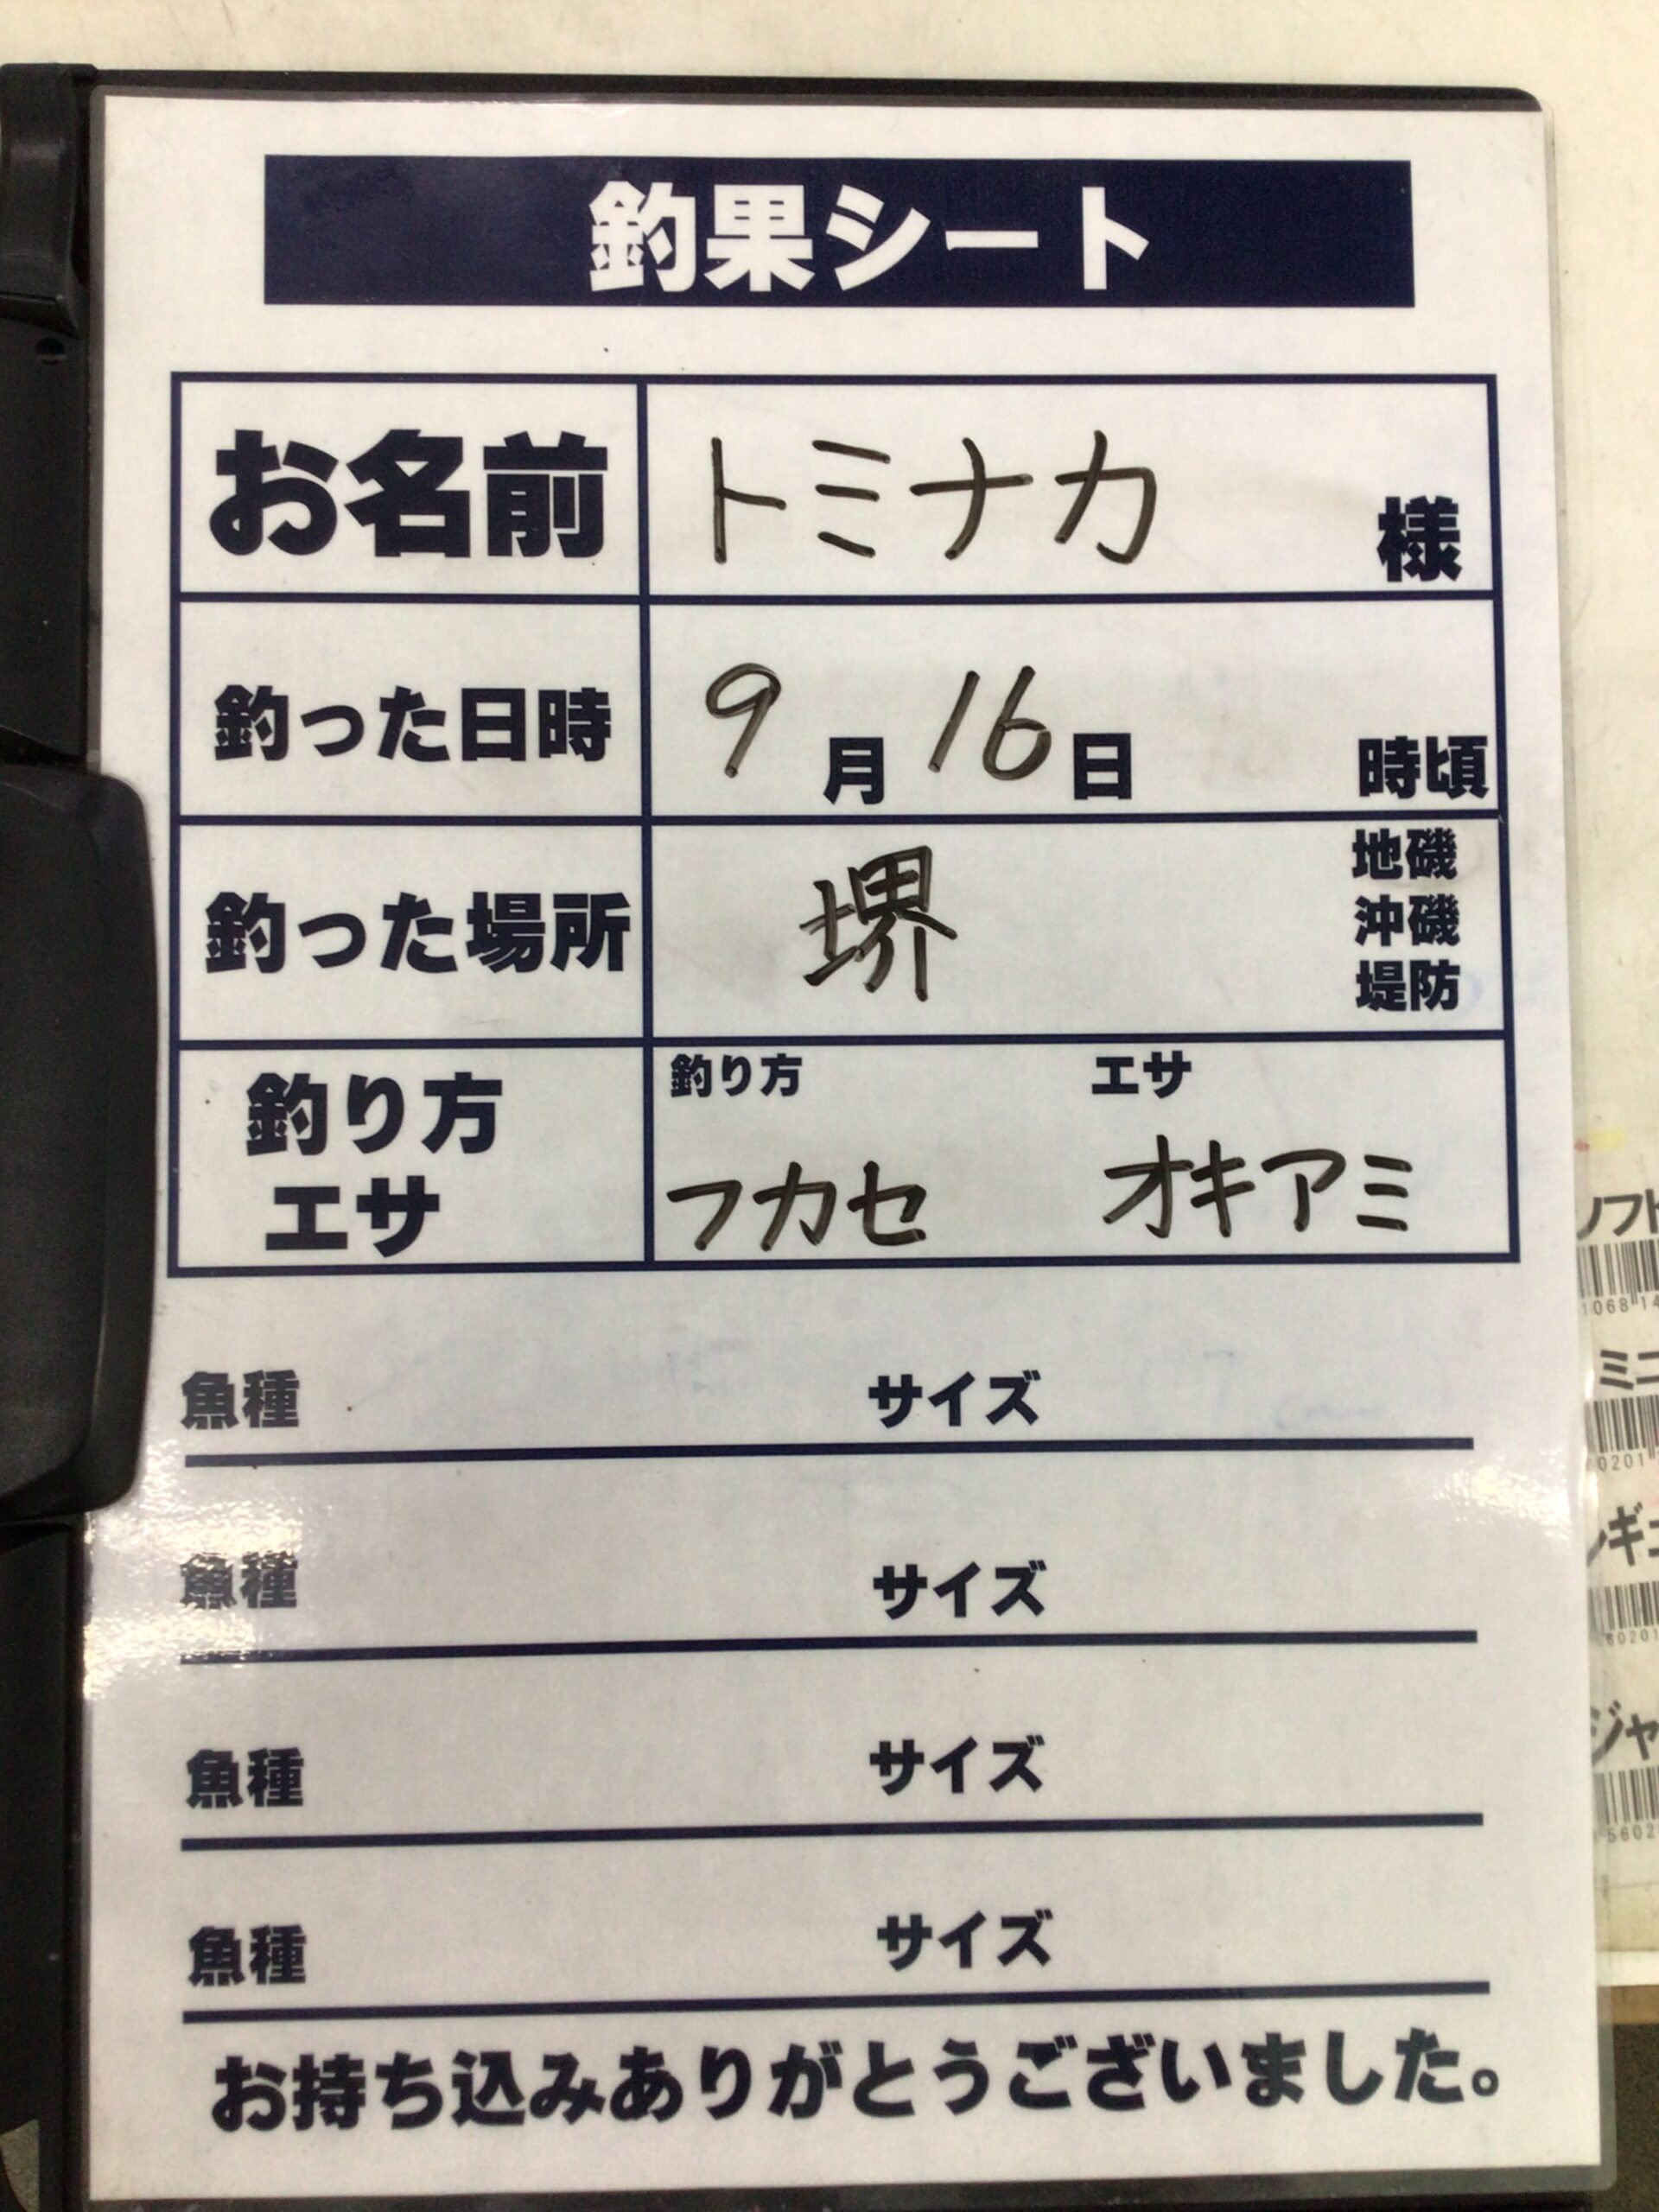 釣果シート
お名前 トミナカ 様
釣った日時 9月16日 時頃
釣った場所 堺 地磯
沖磯
堤防
釣り方 エサ
釣り方
エサ
フカセ オキアミ
魚種 サイズ
魚種 サイズ
魚種 サイズ
魚種 サイズ
お持ち込みありがとうございました。